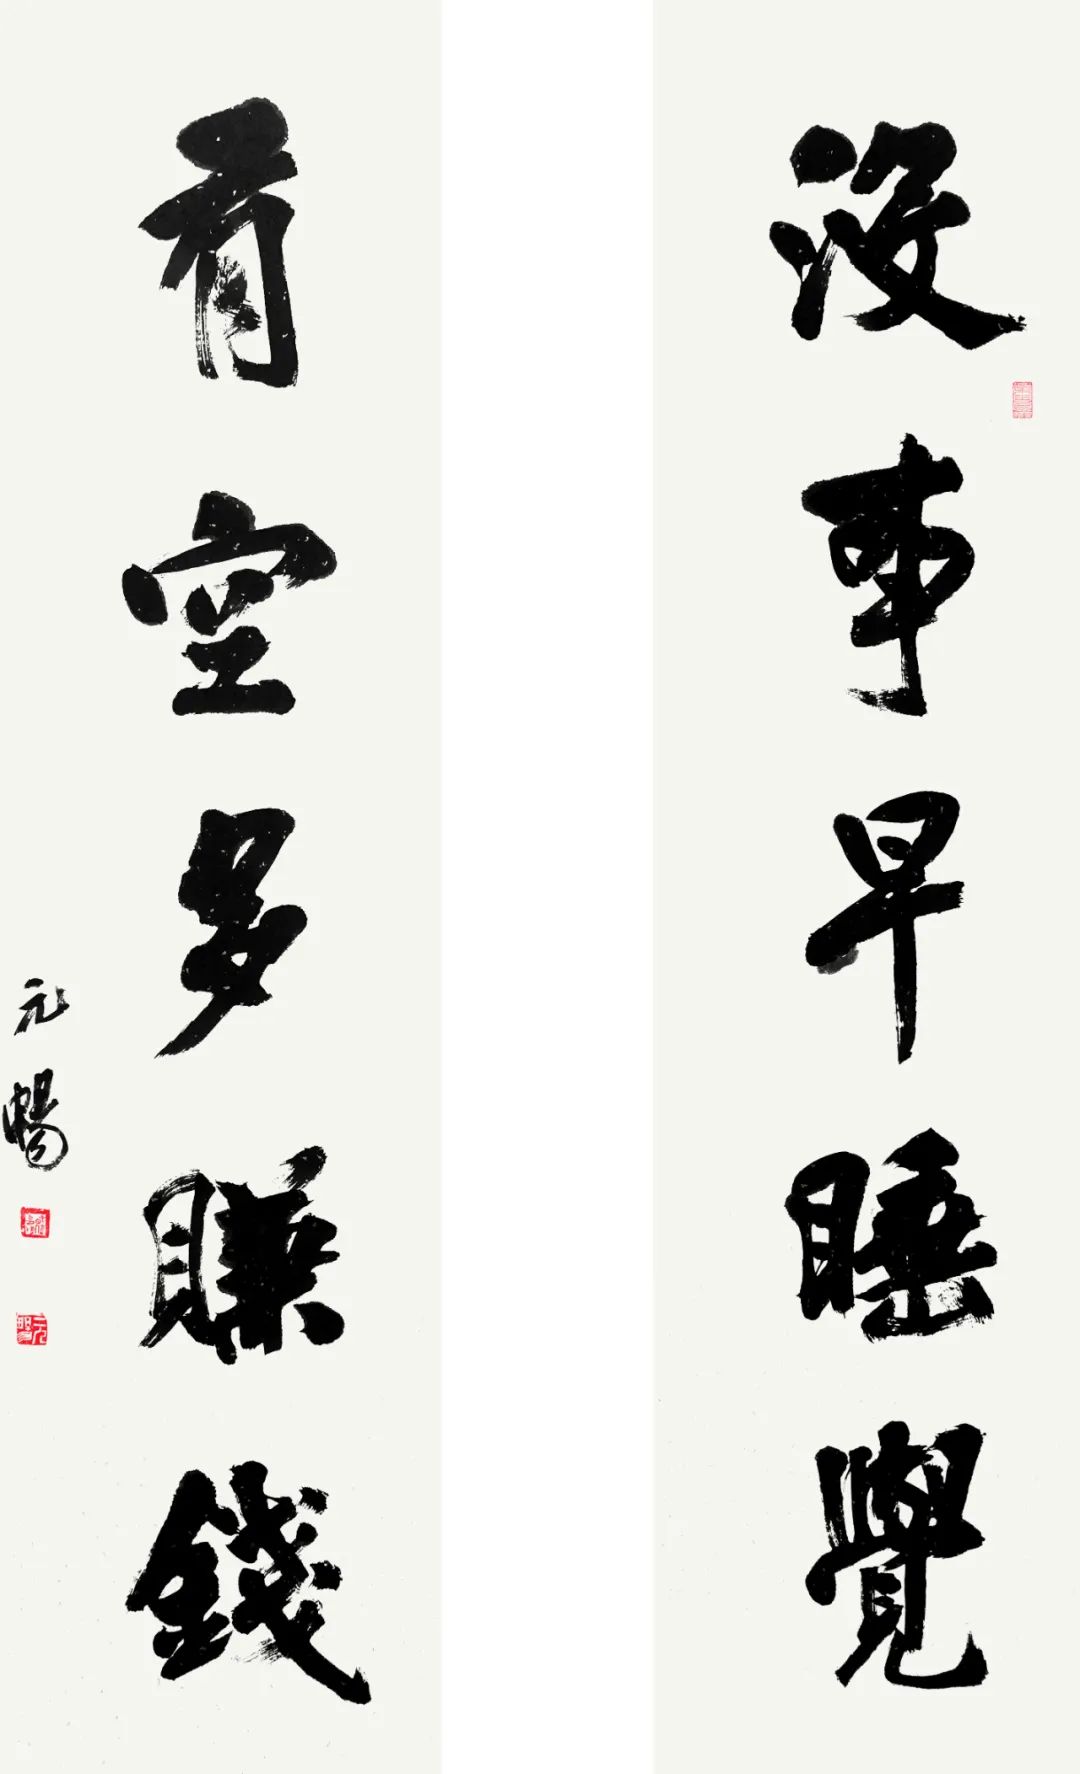 沒事早睡覺
有空多賺錢
元暢